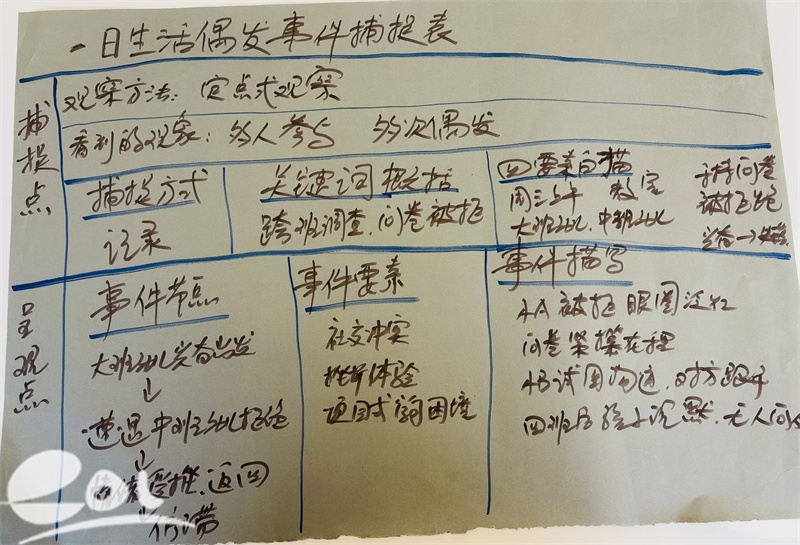 一日生活偶发事件捕捉表
捕捉点
观察方法：定点式观察
看到的现象：多人参与 多次偶发
捕捉方式
记录
关键词概括
跨班调查、问卷被拒
四要素白描
周三上午 教室
大班幼儿、中班幼儿
手持问卷
被拒绝
呈观点
事件节点
大班幼儿兴奋出发
↓
遭遇中班幼儿拒绝
↓
情绪受挫、返回
事件要素
社交冲突
挫折体验
项目式 困境
事件描写
幼A被拒 眼圈泛红
问卷
幼B试图沟通、对方
回班后 沉默、无人问
eol